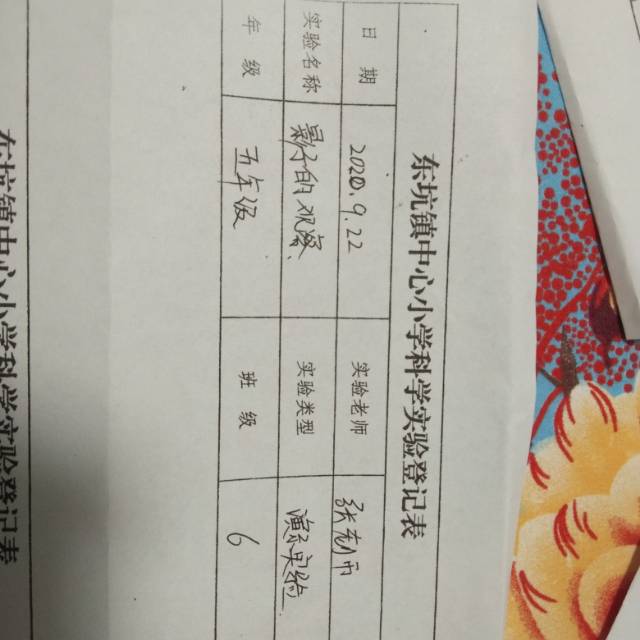 东坑镇中心小学科学实验登记表
日 期 2020.9.22 实验老师 张老师
实验名称 影子的观察 实验类型 演示实验
年 级 五年级 班 级 6
东坑镇中心小学科学实验登记表